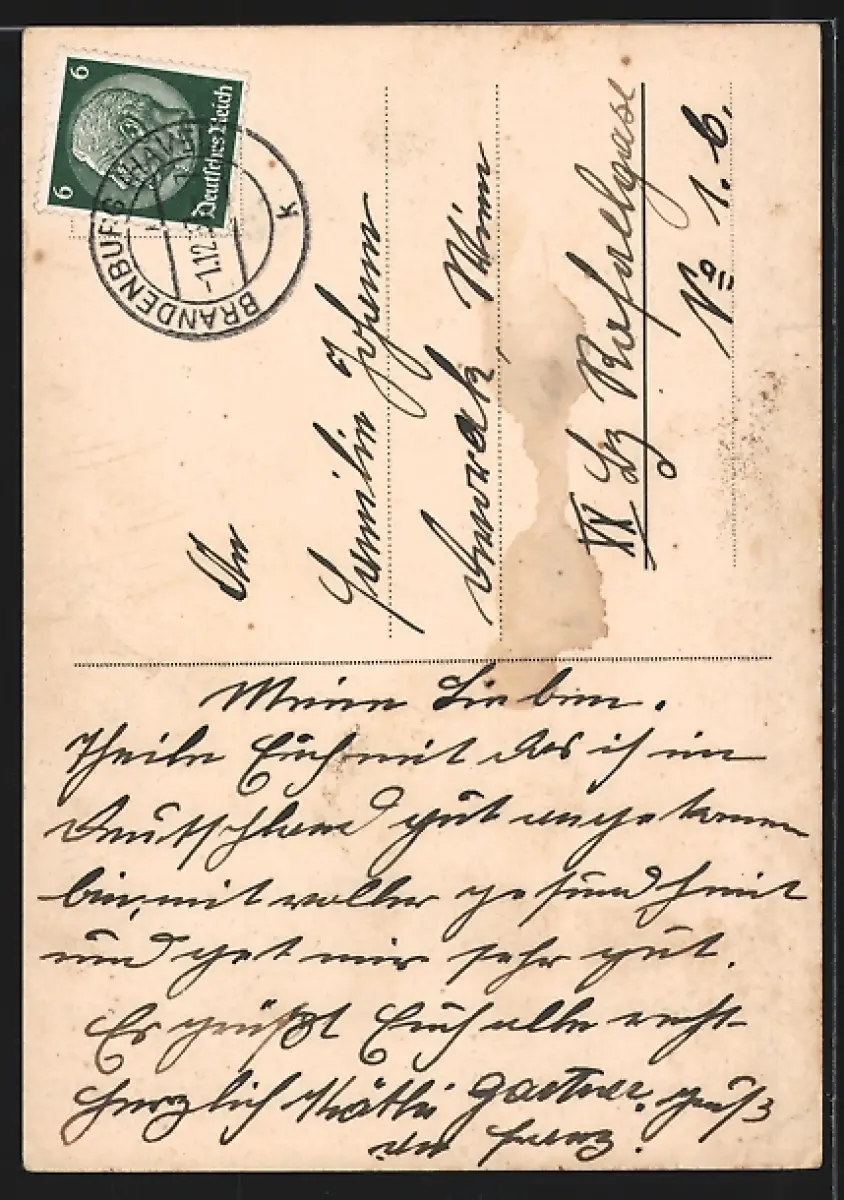 6
6
Deutsches Reich
BRANDENBURG (HAVEL)
-1.12.
k
An
Familie Johann
Dworak, Wien
XX Bz Rafaelgasse
No 1. 6.
Meine Lieben.
Theile Euch mit das ich in
Deutschland gut angekommen
bin, mit voller gesundheit
und get mir sehr gut.
Es grüßt Euch alle recht-
herzlich Käthi Gartner. gruß
an Franz.